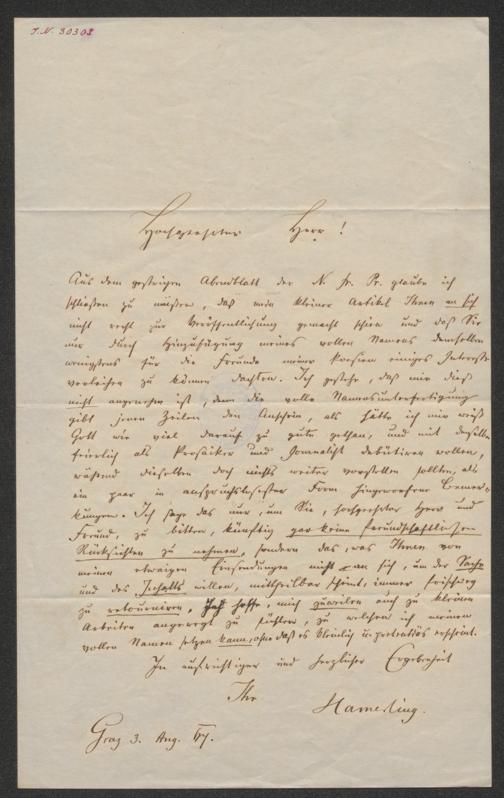 J.N. 30303
Hochgeehrter Herr!
Aus dem gestrigen Abendblatt der N. fr. Pr. glaube ich
schließen zu müssen, daß mein kleiner Artikel Ihnen an sich
nicht recht zur Veröffentlichung gemacht schien und daß Sie
nur durch Hinzufügung meines vollen Namens demselben
wenigstens für die Freunde meiner Poesien einiges Interesse
verleihen zu können dachten. Ich gestehe, daß mir dies
nicht angenehm ist, denn die volle Namensunterfertigung
gibt jenen Zeilen den Anschein, als hätte ich mir weiß
Gott wie viel darauf zu gute gethan, und mit denselben
feierlich als Prosaiker und Journalist debütiren wollen,
während dieselben doch nichts weiter vorstellen sollten, als
ein paar in anspruchslosester Form hingeworfene Bemer-
kungen. Ich sage das nur, um Sie, hochgeehrter Herr und
Freund, zu bitten, künftig gar keine freundschaftlichen
Rücksichten zu nehmen, sondern das, was Ihnen von
meinen etwaigen Einsendungen nicht an sich, um der Sache
und des Inhalts willen, mittheilbar scheint, immer frischweg
zu retourniren. Ich hoffe, mich zuweilen auch zu kleinen
Arbeiten angeregt zu fühlen, zu welchen ich meinen
vollen Namen setzen kann, ohne daß es kleinlich u. prätentiös erscheint.
In aufrichtiger und herzlicher Ergebenheit
Ihr
Hamerling.
Graz 3. Aug.